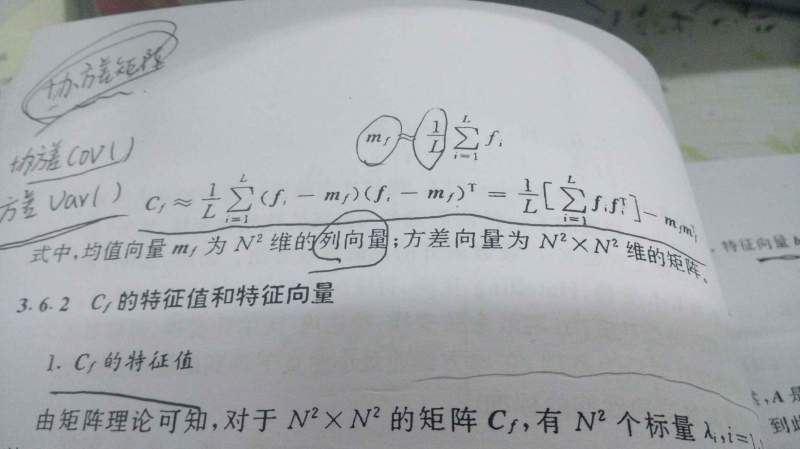 协方差矩阵
m_f ≈ 1/L ∑_{i=1}^{L} f_i
协方差 COV( )
方差 Var( )
C_f ≈ 1/L ∑_{i=1}^{L} (f_i − m_f)(f_i − m_f)^T = 1/L [∑_{i=1}^{L} f_i f_i^T] − m_f m_f^T
式中,均值向量 m_f 为 N² 维的列向量;方差向量为 N²×N² 维的矩阵。
3.6.2 C_f 的特征值和特征向量
1. C_f 的特征值
由矩阵理论可知,对于 N²×N² 的矩阵 C_f,有 N² 个标量 λ_i,i=1,
特征向量
,A 是
到此